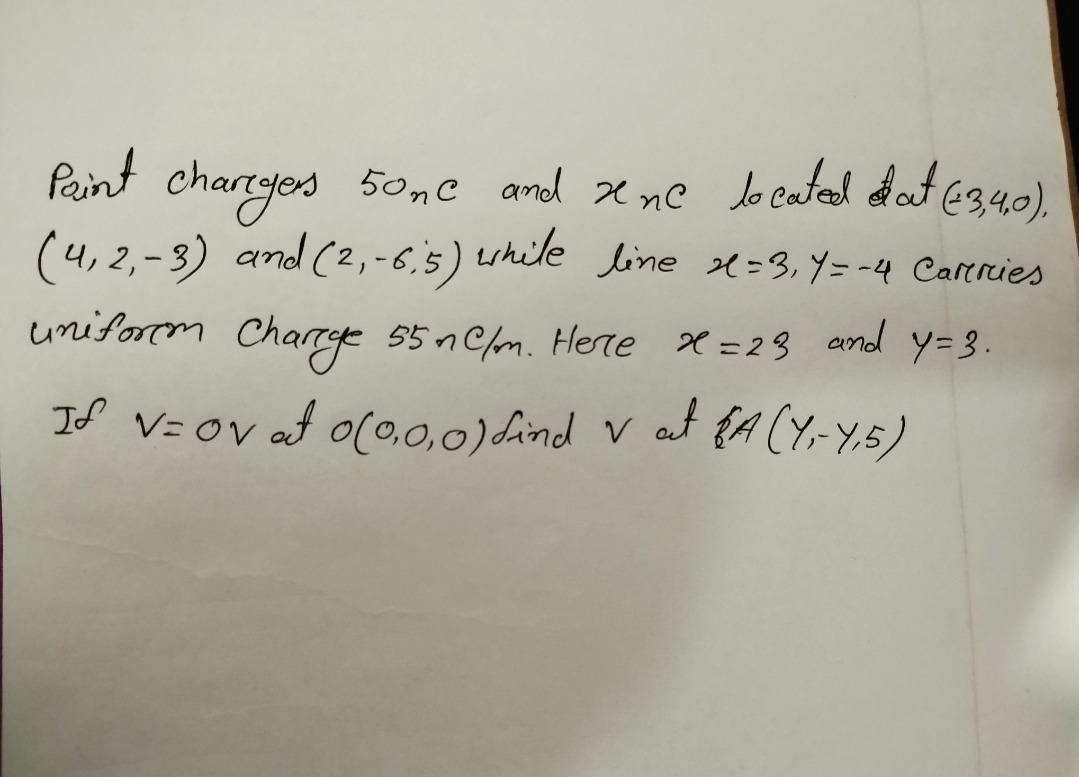 Point chargers 50nC and x nC located at (-3,4,0),
(4,2,-3) and (2,-6,5) while line x=3, y=-4 Carries
uniform Charge 55nC/m. Here x=23 and y=3.
If V=0V at O(0,0,0) find V at A(Y,-Y,5)